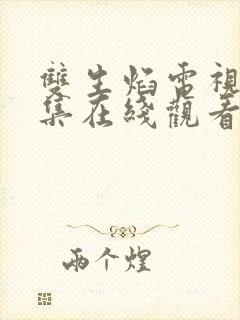 雙生焰電視
集在綫觀看
兩个煌